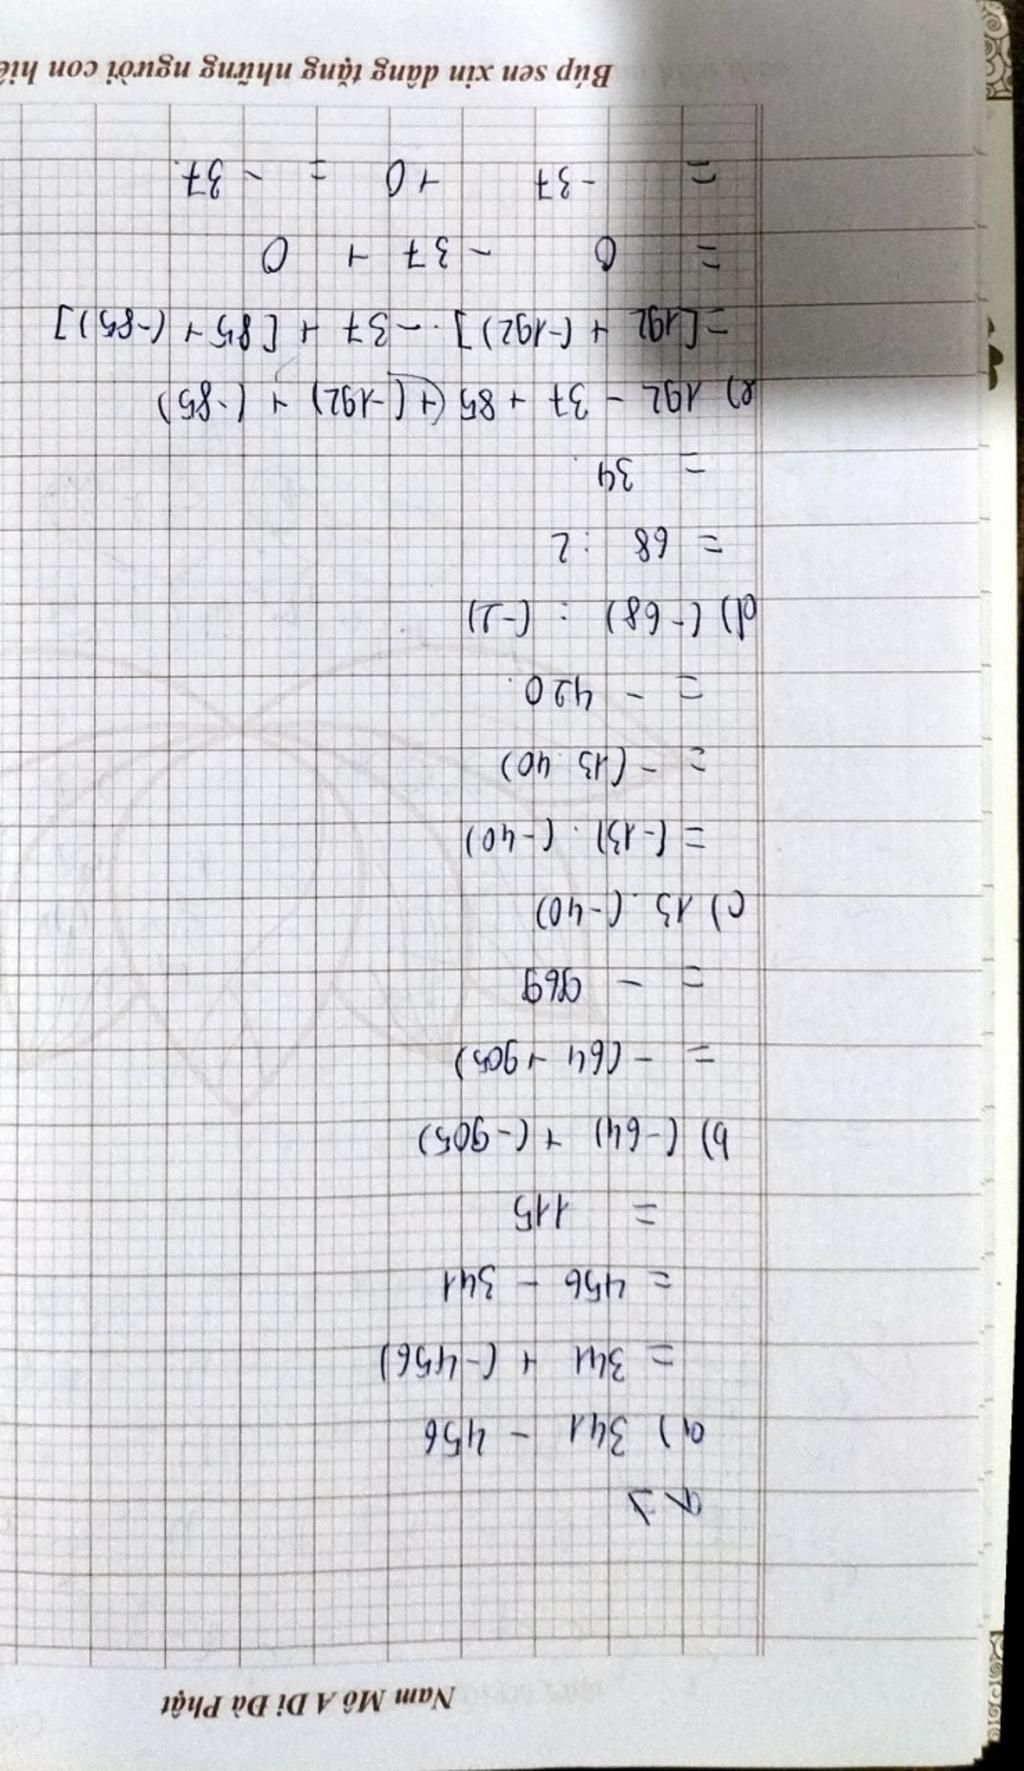 Nam Mô A Di Đà Phật
a) 341 - 456
= 341 + (-456)
= 456 - 341
= 115
b) (-64) + (-905)
= - (64 + 905)
= - 969
c) 13 . (-40)
= (-13) . (-40)
= - (13 . 40)
= - 420
d) (-68) : (-2)
= 68 : 2
= 34
e) 192 - 37 + 85 (+ (-192) + (-85)
= [192 + (-192)] - 37 + [85 + (-85)]
= 0 - 37 + 0
= -37 + 0 = - 37
Búp sen xin dâng tặng những người con